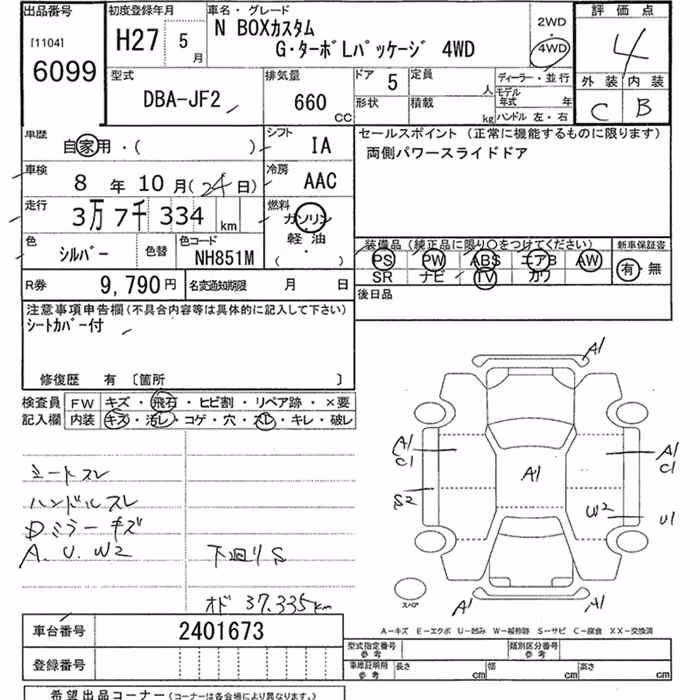 出品番号 初度登録年月 車名・グレード 評価点
[1104] 6099
H27 5月
N BOXカスタム
G・ターボLパッケージ 4WD
2WD
4WD
4
外装 内装
C B
型式 DBA-JF2
排気量 660 CC
ドア 5
定員 人
形状
積載 kg
ディーラー・並行
モデル年式 年
ハンドル 左・右
車歴 自家用・( )
シフト IA
セールスポイント (正常に機能するものに限ります)
両側パワースライドドア
車検 8年 10月(24日)
冷房 AAC
走行 3万 7千 334 km
燃料 ガソリン・軽油・( )
色 シルバー
色替
色コード NH851M
装備品 (純正品に限り○をつけてください)
PS PW ABS エアB AW
SR ナビ TV カワ
新車保証書
有・無
R券 9,790円
名変通知期限 月 日
後日品
注意事項申告欄(不具合内容等は具体的に記入して下さい)
シートカバー付
修復歴 有 〔箇所 〕
検査員記入欄
FW キズ・飛石・ヒビ割・リペア跡・×要
内装 キズ・汚レ・コゲ・穴・スレ・キレ・破レ
シートスレ
ハンドルスレ
Dミラーキズ
A. U. W2 下廻りS
オド 37.335km
A1
A1 C1
A1
A1 C1
S2
W2
U1
A1
A1
スペア
A-キズ E-エクボ U-凹み W-補修跡 S-サビ C-腐食 XX-交換済
車台番号 2401673
登録番号
型式指定番号 参考
類別区分番号 参考
車庫証明用 参考 長さ cm 幅 cm 高さ cm
希望出品コーナー(コーナーは各会場により異なります。)